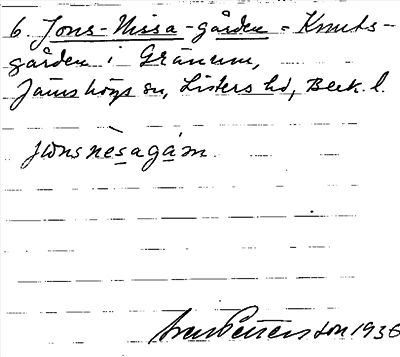 6. Jons-Nissa-gården = Knuts-
gården i Gränum,
Jämshögs sn, Listers hd, Blek. l.
jωnsnèsagám
Pettersson 1936